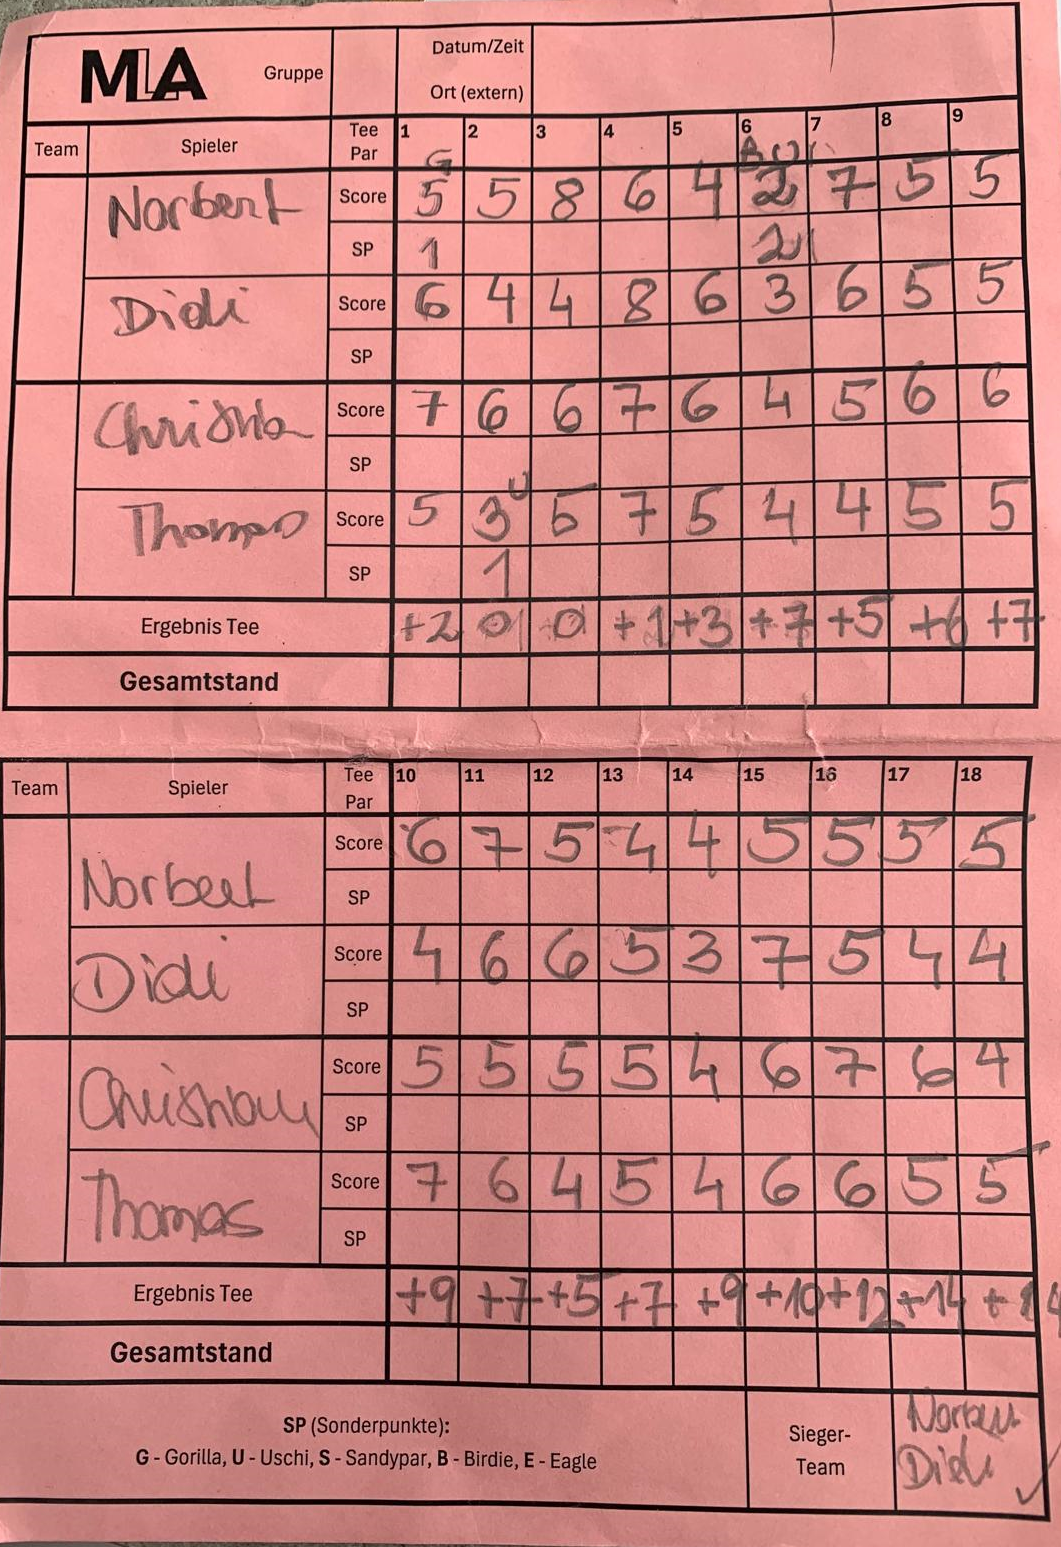 MLA Gruppe Datum/Zeit
Ort (extern)
Team Spieler Tee Par 1 2 3 4 5 6 7 8 9
G B U
Norbert Score 5 5 8 6 4 2 7 5 5
SP 1 2
Didi Score 6 4 4 8 6 3 6 5 5
SP
Score 7 6 6 7 6 4 5 6 6
SP
U
Thomas Score 5 3 5 7 5 4 4 5 5
SP 1
Ergebnis Tee +2 0 0 +1 +3 +7 +5 +6 +7
Gesamtstand
Team Spieler Tee Par 10 11 12 13 14 15 16 17 18
Norbert Score 6 7 5 4 4 5 5 5 5
SP
Didi Score 4 6 6 5 3 7 5 4 4
SP
Score 5 5 5 5 4 6 7 6 4
SP
Thomas Score 7 6 4 5 4 6 6 5 5
SP
Ergebnis Tee +9 +7 +5 +7 +9 +10 +12 +14 +14
Gesamtstand
SP (Sonderpunkte):
G - Gorilla, U - Uschi, S - Sandypar, B - Birdie, E - Eagle
Sieger-
Team
Norbert
Didi